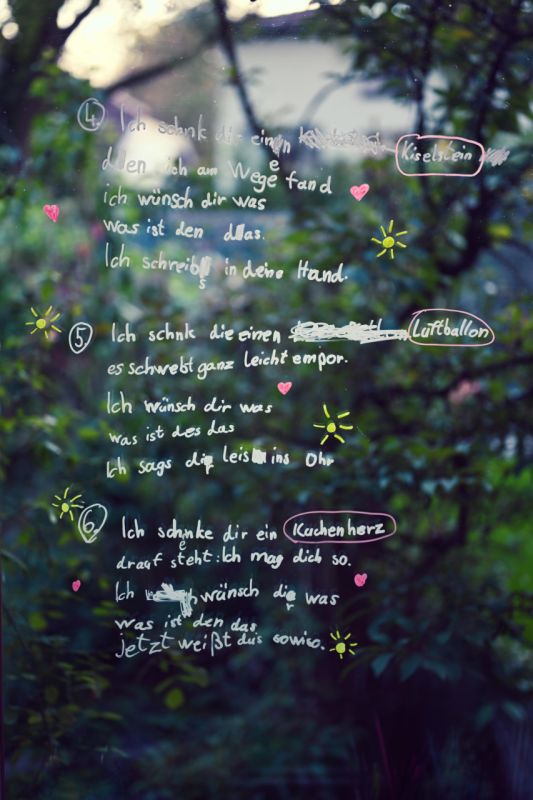 ④ Ich schnk die einen Kiselstein
den ich am Wege fand
ich wünsch dir was
was ist den das.
Ich schreibs in deine Hand.
⑤ Ich schnk die einen Luftballon
es schwebt ganz leicht empor.
Ich wünsch dir was
was ist des das
Ich sags dir leis ins Ohr
⑥ Ich schenke dir ein Kuchenherz
drauf steht: Ich mag dich so.
Ich wänsch dir was
was ist den das
jetzt weißt du's sowiso.